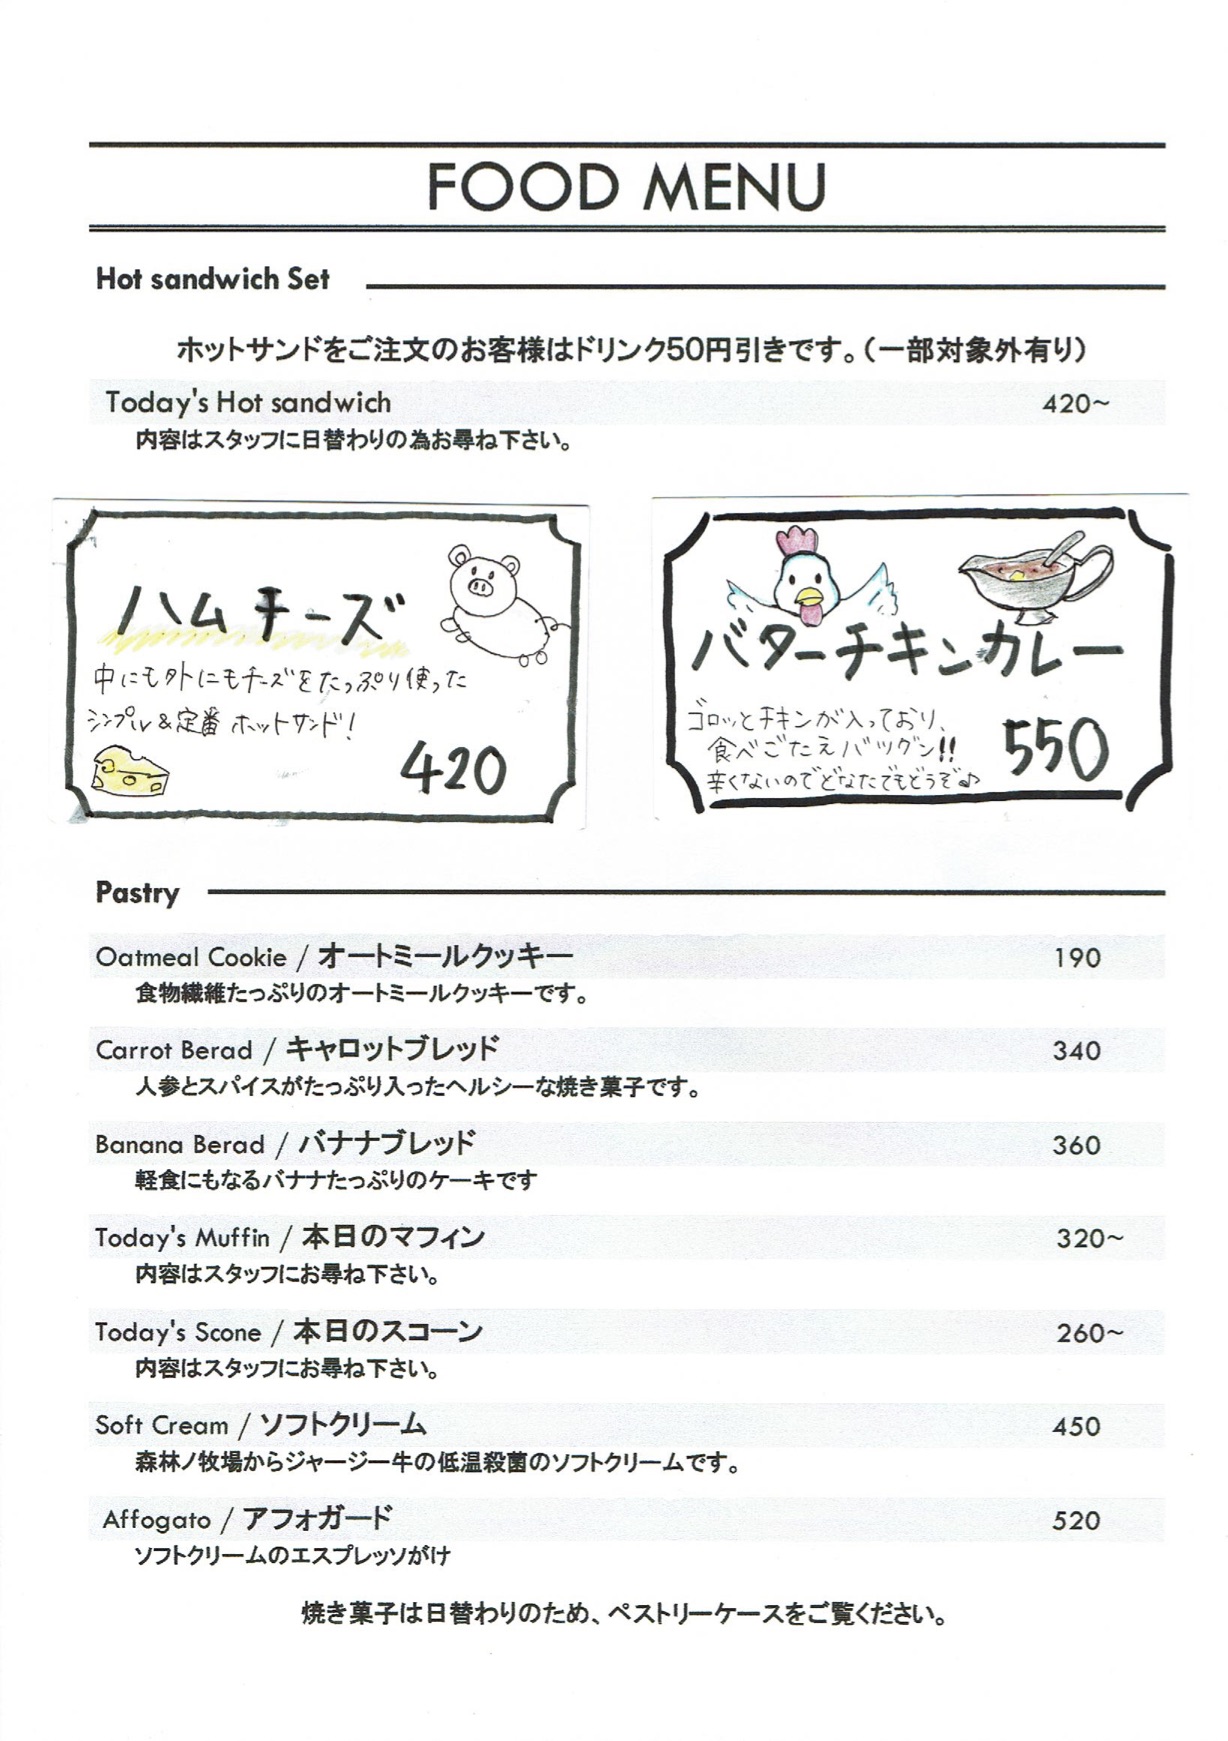 FOOD MENU
Hot sandwich Set
ホットサンドをご注文のお客様はドリンク50円引きです。（一部対象外有り）
Today's Hot sandwich 420~
内容はスタッフに日替わりの為お尋ね下さい。
ハムチーズ
中にも外にもチーズをたっぷり使った
シンプル&定番 ホットサンド!
420
バターチキンカレー
ゴロッとチキンが入っており、
食べごたえバツグン!!
辛くないのでどなたでもどうぞ♪
550
Pastry
Oatmeal Cookie / オートミールクッキー 190
食物繊維たっぷりのオートミールクッキーです。
Carrot Berad / キャロットブレッド 340
人参とスパイスがたっぷり入ったヘルシーな焼き菓子です。
Banana Berad / バナナブレッド 360
軽食にもなるバナナたっぷりのケーキです
Today's Muffin / 本日のマフィン 320~
内容はスタッフにお尋ね下さい。
Today's Scone / 本日のスコーン 260~
内容はスタッフにお尋ね下さい。
Soft Cream / ソフトクリーム 450
森林ノ牧場からジャージー牛の低温殺菌のソフトクリームです。
Affogato / アフォガード 520
ソフトクリームのエスプレッソがけ
焼き菓子は日替わりのため、ペストリーケースをご覧ください。